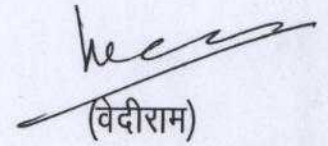 (वेदीराम)